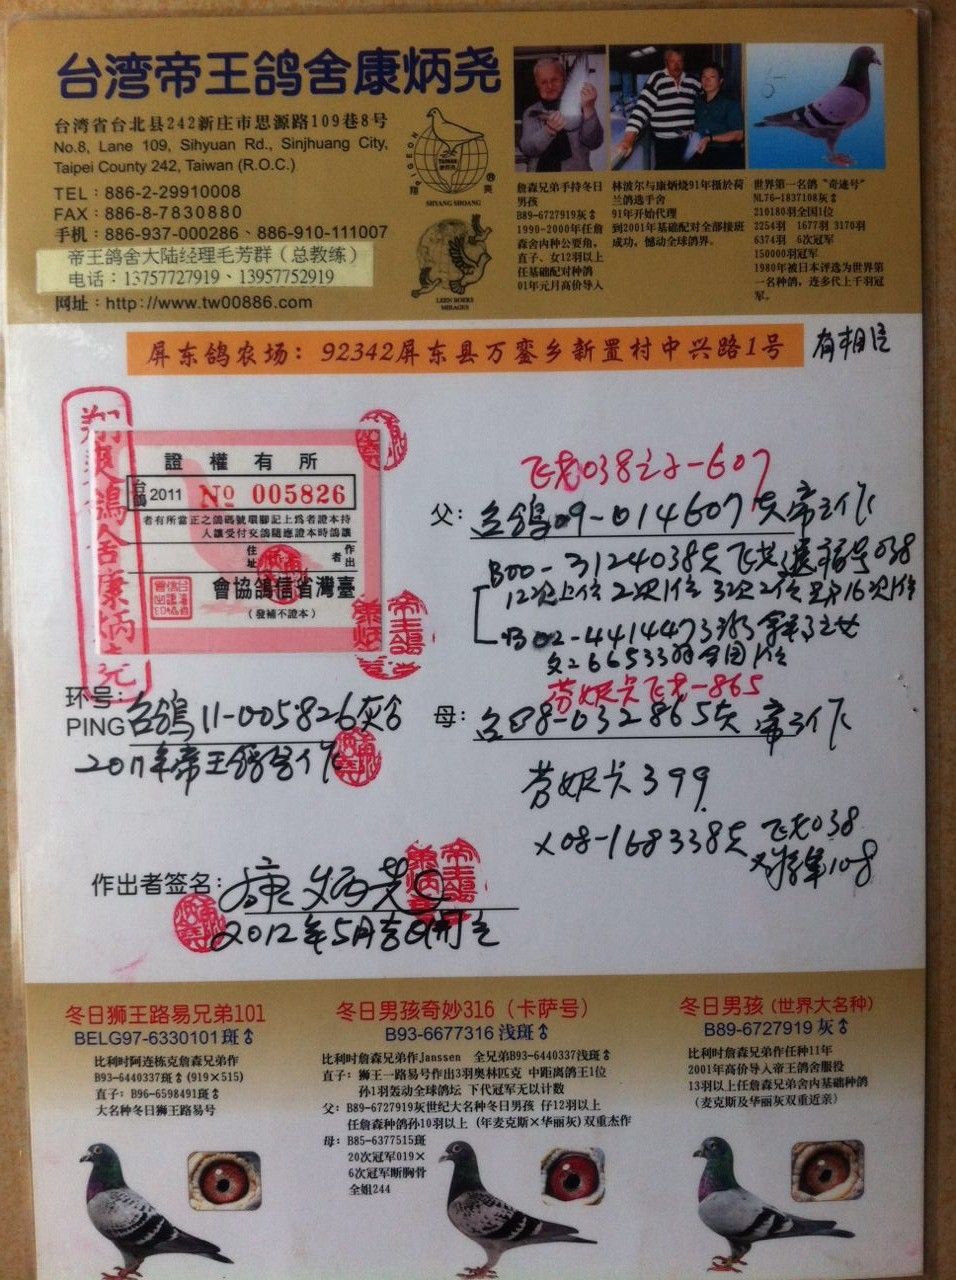 台湾帝王鸽舍康炳尧
台湾省台北县242新庄市思源路109巷8号
No.8, Lane 109, Sihyuan Rd., Sinjhuang City,
Taipei County 242, Taiwan (R.O.C.)
TEL：886-2-29910008
FAX：886-8-7830880
手机：886-937-000286、886-910-111007
帝王鸽舍大陆经理毛芳群（总教练）
电话：13757727919、13957752919
网址：http://www.tw00886.com
PIGEON
TAIWAN
翔 爽
SHYANG SHOANG
LEEN BOERS
MIRAGES
詹森兄弟手持冬日
男孩
B89-6727919灰♂
1990-2000年任詹
森舍内种公要角，
直子、女12羽以上
任基础配对种鸽
01年元月高价导入
林波尔与康炳烧91年摄於荷
兰鸽选手舍
91年开始代理
到2001年基础配对全部接班
成功，憾动全球鸽界。
世界第一名鸽“奇迹号”
NL76-1837108灰♂
210180羽全国1位
2254羽 1677羽 3170羽
6374羽 6次冠军
150000羽冠军
1980年被日本评选为世界第
一名种鸽，连多代上千羽冠
军。
屏东鸽农场：92342屏东县万銮乡新置村中兴路1号
有相片
翔爽鸽舍康炳尧
證權有所
台鴿 2011 No 005826
者有所當正之號碼號環腳記上為者證本持
人讓受付交鴿隨應證本時鴿讓
住址
作出者
會協鴿信省灣臺
(發補不證本)
飞龙038之子-607
父：台鸽09-014607灰帝王作
B00-3124038灰 飞龙 038
12次上位 2次1位 3次2位 16次1位
02-4414473
环号：
PING 台鸽11-005826灰
2011年帝王鸽舍作
劳妮卡飞龙-865
母：台08-0328655灰 帝王作
劳妮卡399
×08-1683385灰 飞龙038
作出者签名：康炳尧
2012年5月吉日
冬日狮王路易兄弟101
BELG97-6330101斑♂
比利时阿连栋克詹森兄弟作
B93-6440337斑♂(919×515)
直子：B96-6598491斑♂
大名种冬日狮王路易号
冬日男孩奇妙316（卡萨号）
B93-6677316浅斑♂
比利时詹森兄弟作Janssen 全兄弟B93-6440337浅斑♂
直子：狮王一路易号作出3羽奥林匹克 中距离鸽王1位
孙1羽轰动全球鸽坛 下代冠军无以计数
父：B89-6727919灰世纪大名种冬日男孩 仔12羽以上
任詹森种鸽孙10羽以上（年麦克斯×华丽灰）双重杰作
母：B85-6377515斑
20次冠军019×
6次冠军断胸骨
全姐244
冬日男孩（世界大名种）
B89-6727919灰♂
比利时詹森兄弟作任种11年
2001年高价导入帝王鸽舍服役
13羽以上任詹森兄弟舍内基础种鸽
（麦克斯及华丽灰双重近亲）